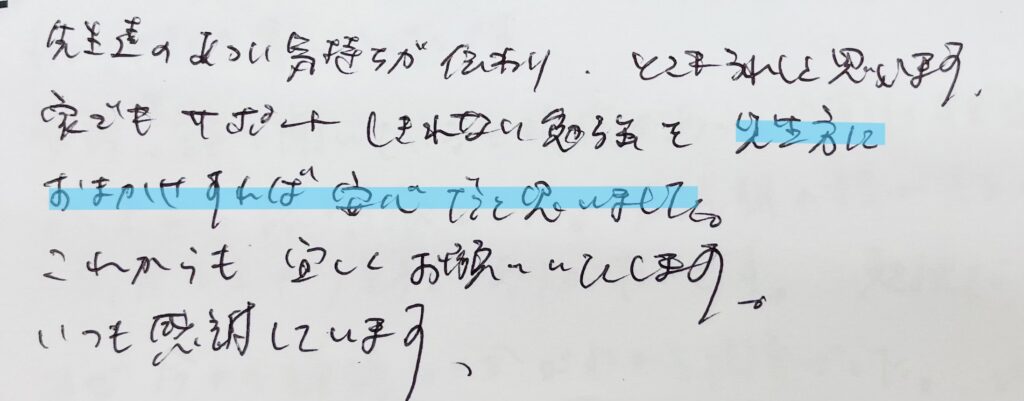 先生達のあつい気持ちが伝わり、とてもうれしく思います。
家でも サポート しきれない勉強を 先生方に
おまかせすれば 安心だと思いました。
これからも 宜しく お願いいたします。
いつも感謝しています、